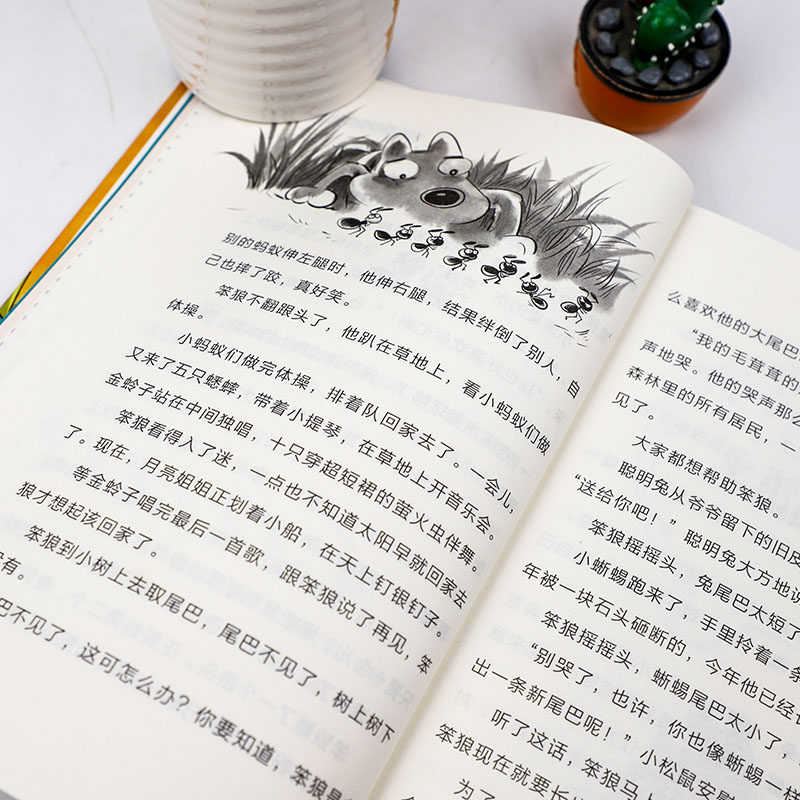 别的蚂蚁伸左腿时，他伸右腿，结果绊倒了别人，自
己也摔了跤，真好笑。
笨狼不翻跟头了，他趴在草地上，看小蚂蚁们做
体操。
小蚂蚁们做完体操，排着队回家去了。一会儿，
又来了五只蟋蟀，带着小提琴，在草地上开音乐会。
金蛉子站在中间独唱，十只穿超短裙的萤火虫伴舞。
笨狼看得入了迷，一点也不知道太阳早就回家去
了。现在，月亮姐姐正划着小船，在天上钉银钉子。
等金蛉子唱完最后一首歌，跟笨狼说了再见，笨
狼才想起该回家了。
笨狼到小树上去取尾巴，尾巴不见了，树上树下
没有。
巴不见了，这可怎么办？你要知道，笨狼是
么喜欢他的大尾巴
“我的毛茸茸的
声地哭。他的哭声那么
森林里的所有居民，一
见了。
大家都想帮助笨狼。
聪明兔从爷爷留下的旧皮
“送给你吧！”聪明兔大方地说
笨狼摇摇头，兔尾巴太短了
小蜥蜴跑来了，手里拎着一条
年被一块石头砸断的，今年他已经
笨狼摇摇头，蜥蜴尾巴太小了，
“别哭了，也许，你也像蜥蜴一样
出一条新尾巴呢！”小松鼠安慰
听了这话，笨狼马上
笨狼现在就要长
为了